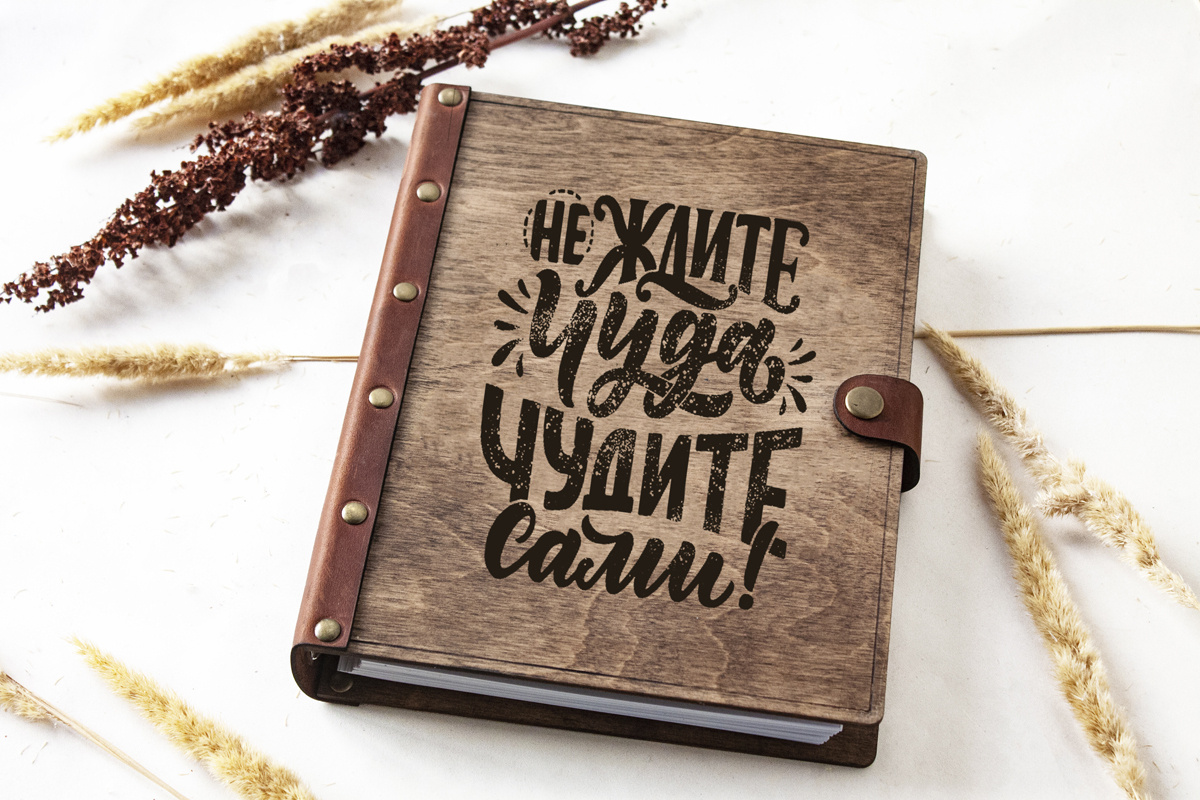 НЕ ЖДИТЕ
Чуда
ЧУДИТЕ
Сами!